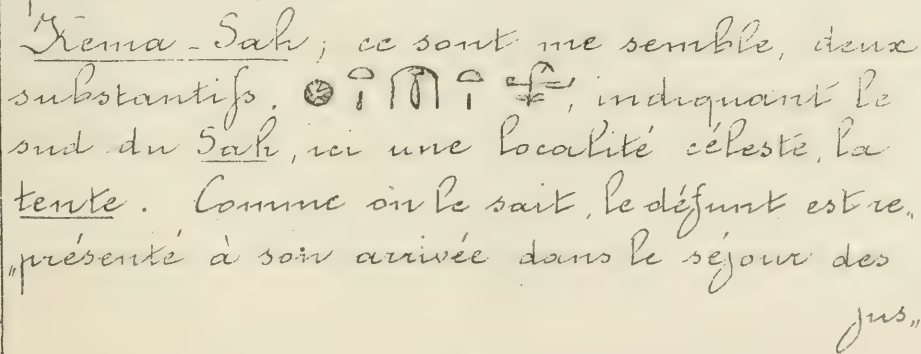 Kema - Sah ; ce sont me semble, deux
substantifs. , indiquant le
sud du Sah, ici une localité céleste, la
tente. Comme on le sait, le défunt est re„
„présenté à son arrivée dans le séjour des
jus„